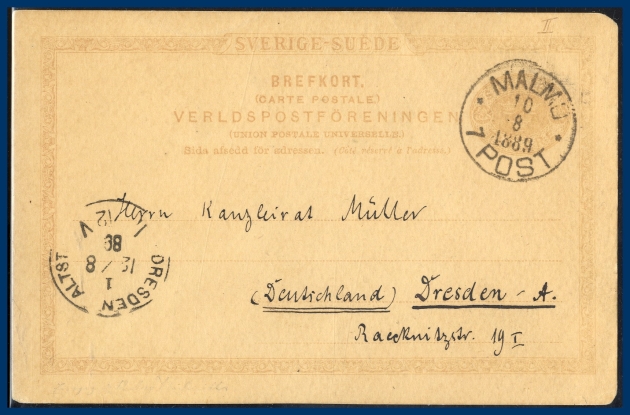 II
SVERIGE-SUÈDE
BREFKORT.
(CARTE POSTALE.)
VERLDSPOSTFÖRENINGEN
(UNION POSTALE UNIVERSELLE)
Sida afsedd för adressen. (Côté réservé à l'adresse.)
MALMÖ
10
8
1889
1 POST.
Herrn Kanzleirat Müller
(Deutschland) Dresden - A.
Raecknitzstr. 19 I
DRESDEN ALTST
1
12 / 8
89
V